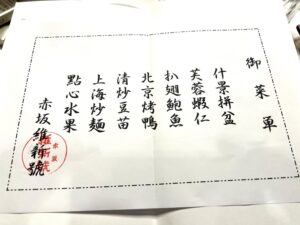 御菜單
什景拼盆
芙蓉蝦仁
扒翅鮑魚
北京烤鴨
清炒豆苗
上海炒麵
點心水果
赤坂維新號